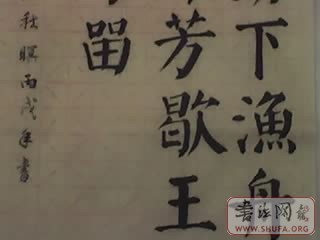 下漁舟
芳歇王
留
秋暝丙戌年書
書法网
WWW.SHUFA.ORG